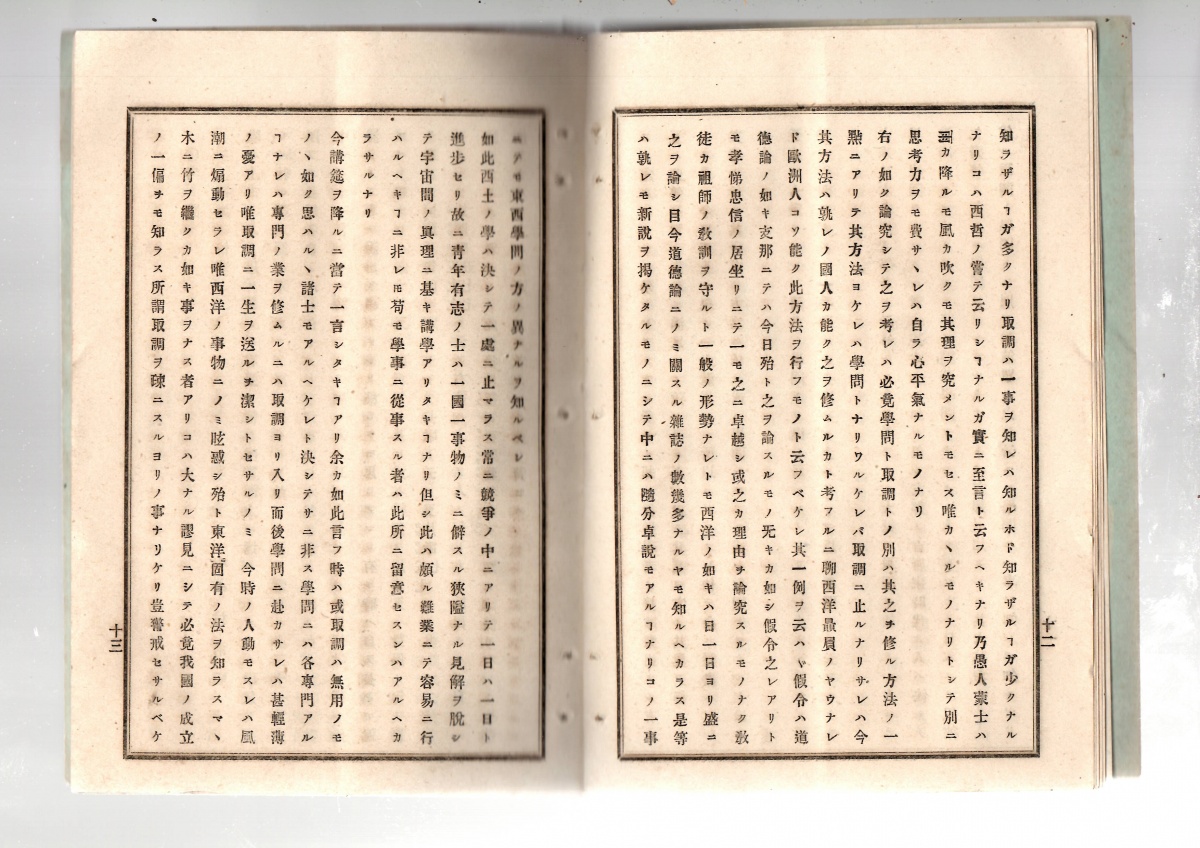 知ラザルヿガ多クナリ取調ハ一事ヲ知レハ知ルホド知ラザルヿガ少クナル
ナリコハ西哲ノ嘗テ云リシヿナルガ實ニ至言ト云フヘキナリ乃愚人蒙士ハ
カ降ルモ風カ吹クモ其理ヲ究メントモセス唯カヽルモノナリトシテ別ニ
思考力ヲモ費サヽレハ自ラ心平氣ナルモノナリ
右ノ如ク論究シテ之ヲ考レハ必竟學問ト取調トノ別ハ其之ヲ修ル方法ノ一
點ニアリテ其方法ヨケレハ學問トナリワルケレバ取調ニ止ルナリサレハ今
其方法ハ孰レノ國人カ能ク之ヲ修ムルカト考フルニ聊西洋贔員ノヤウナレ
ド歐洲人コソ能ク此方法ヲ行フモノト云フベケレ其一例ヲ云ハヽ假令ハ道
德論ノ如キ支那ニテハ今日殆ト之ヲ論スルモノ旡キカ如シ假令之レアリト
モ孝悌忠信ノ居坐リニテ一モ之ニ卓越シ或之カ理由ヲ論究スルモノナク敎
徒カ祖師ノ敎訓ヲ守ルト一般ノ形勢ナレトモ西洋ノ如キハ日一日ヨリ盛ニ
之ヲ論シ目今道德論ニノミ關スル雜誌ノ數幾多ナルヤモ知ルヘカラス是等
ハ孰レモ新說ヲ揭ケタルモノニシテ中ニハ隨分卓說モアルヿナリコノ一事
十二
ニテモ東西學問ノ方ノ異ナルヲ知ルベシ
如此西土ノ學ハ決シテ一處ニ止マラス常ニ競爭ノ中ニアリテ一日ハ一日ト
進步セリ故ニ青年有志ノ士ハ一國一事物ノミニ僻スル狹隘ナル見解ヲ脫シ
テ宇宙間ノ眞理ニ基キ講學アリタキヿナリ但シ此ハ頗ル難業ニテ容易ニ行
ハルヘキヿニ非レモ苟モ學事ニ從事スル者ハ此所ニ留意セスンハアルヘカ
ラサルナリ
今講筵ヲ降ルニ當テ一言シタキヿアリ余カ如此言フ時ハ或取調ハ無用ノモ
ノヽ如ク思ハルヽ諸士モアルヘケレト決シテサニ非ス學問ニハ各專門アル
ヿナレハ專門ノ業ヲ修ムルニハ取調ヨリ入リ而後學問ニ赴カサレハ甚輕薄
ノ憂アリ唯取調ニ一生ヲ送ルヲ潔シトセサルノミ 今時ノ人動モスレハ風
潮ニ煽動セラレ唯西洋ノ事物ニノミ眩惑シ殆ト東洋固有ノ法ヲ知ラスマヽ
木ニ竹ヲ繼クカ如キ事ヲナス者アリコハ大ナル謬見ニシテ必竟我國ノ成立
ノ一偏ヲモ知ラス所謂取調ヲ疎ニスルヨリノ事ナリケリ豈警戒セサルベケ
十三